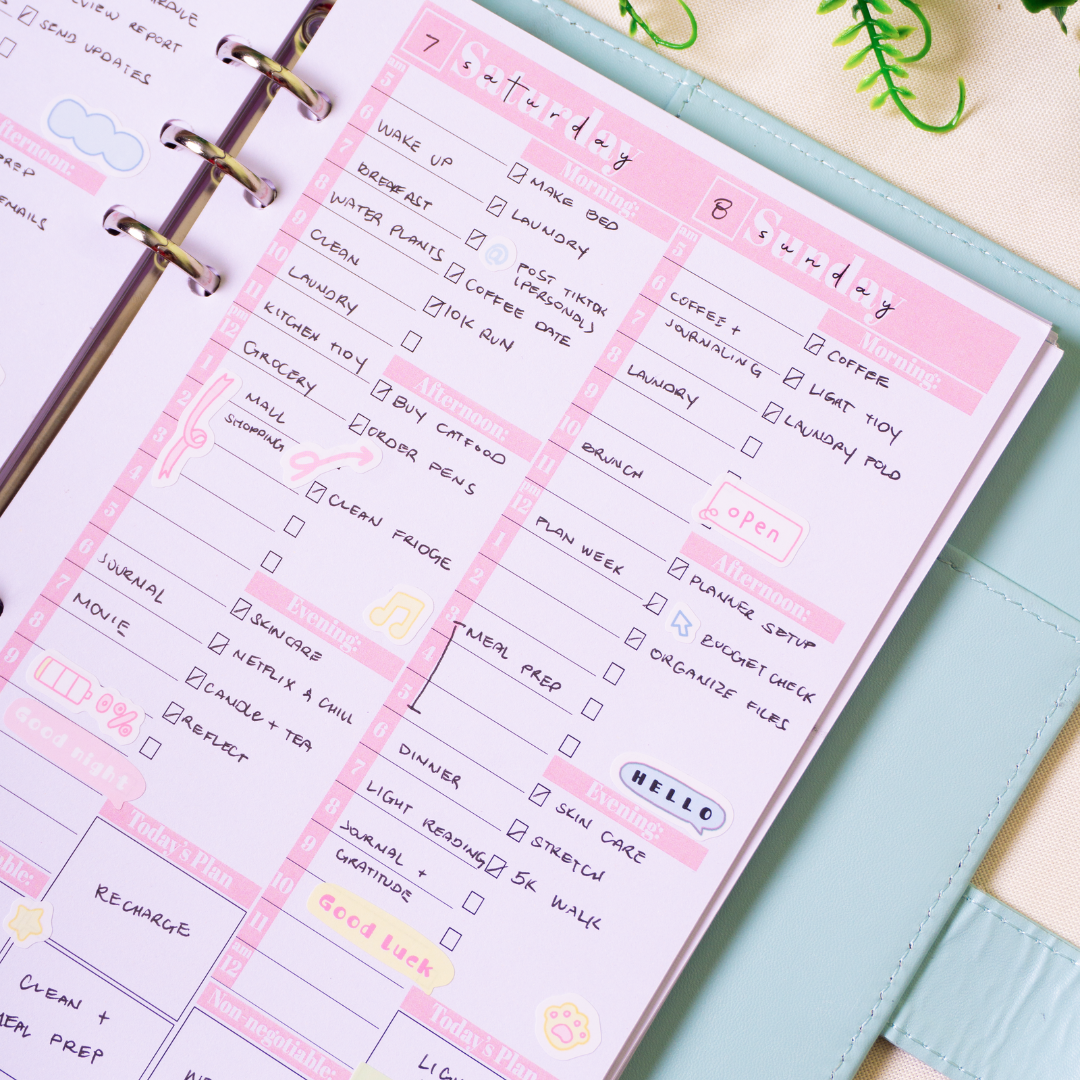 REVIEW REPORT
SEND UPDATES
PREP
EMAILS
7
Saturday
saturday
am
5
6
7
8
9
10
11
pm
12
1
2
3
4
5
6
7
8
9
WAKE UP
BREAKFAST
WATER PLANTS
CLEAN
LAUNDRY
KITCHEN TIDY
GROCERY
MALL
SHOPPING
JOURNAL
MOVIE
0%
Good night
Morning:
MAKE BED
LAUNDRY
@
POST TIKTOK
(PERSONAL)
COFFEE DATE
10K RUN
Afternoon:
BUY CATFOOD
ORDER PENS
CLEAN FRIDGE
Evening:
SKINCARE
NETFLIX & CHILL
CANDLE + TEA
REFLECT
Today's Plan
RECHARGE
CLEAN +
MEAL PREP
8
Sunday
sunday
am
5
6
7
8
9
10
11
pm
12
1
2
3
4
5
6
7
8
9
10
11
am
12
COFFEE +
JOURNALING
LAUNDRY
BRUNCH
PLAN WEEK
MEAL PREP
DINNER
LIGHT READING
JOURNAL +
GRATITUDE
GOOD LUCK
Morning:
COFFEE
LIGHT TIDY
LAUNDRY FOLD
OPEN
Afternoon:
PLANNER SETUP
BUDGET CHECK
ORGANIZE FILES
HELLO
Evening:
SKIN CARE
STRETCH
5K WALK
Non-negotiable:
Today's Plan